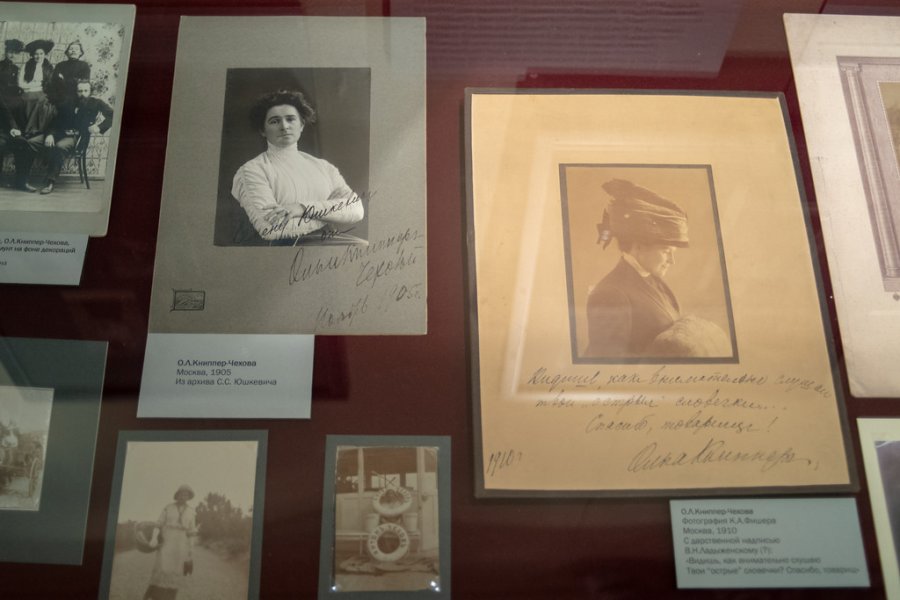 О.Л.Книппер-Чехова,
на фоне декораций
Семену Юшкевичу
от
Ольги Книпперъ
Чеховой
1905 г.
О.Л.Книппер-Чехова
Москва, 1905
Из архива С.С. Юшкевича
Видишь, как внимательно слушаю
твои "острыя" словечки...
Спасибо, товарищъ!
1910 г
Ольга Книпперъ
О.Л.Книппер-Чехова
Фотография К.А.Фишера
Москва, 1910
С дарственной надписью
В.Н.Ладыженскому (?):
«Видишь, как внимательно слушаю
Твои "острые" словечки? Спасибо, товарищ»